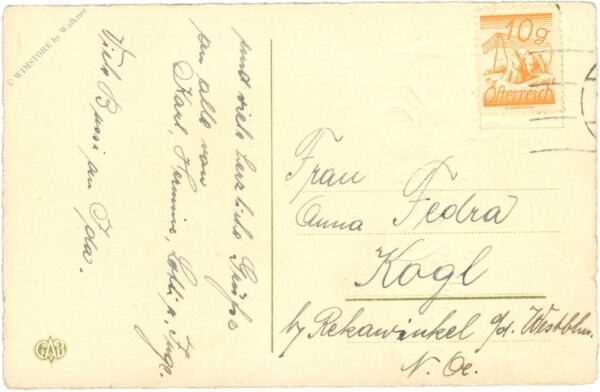 © WIMSTORE by Walkner
und viele herzliche Grüße
an alle von
Karl, Hermine, Lotti u.
Viele Bussi an Ida.
GAB
10g
Österreich
Frau
Anna Fedra
Kogl
by Rekawinkel a/d. Westbhn.
N. Oe.